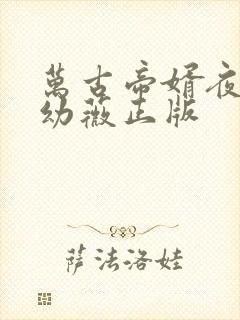 萬古帝婿夜
幼薇正版
萨法洛娃